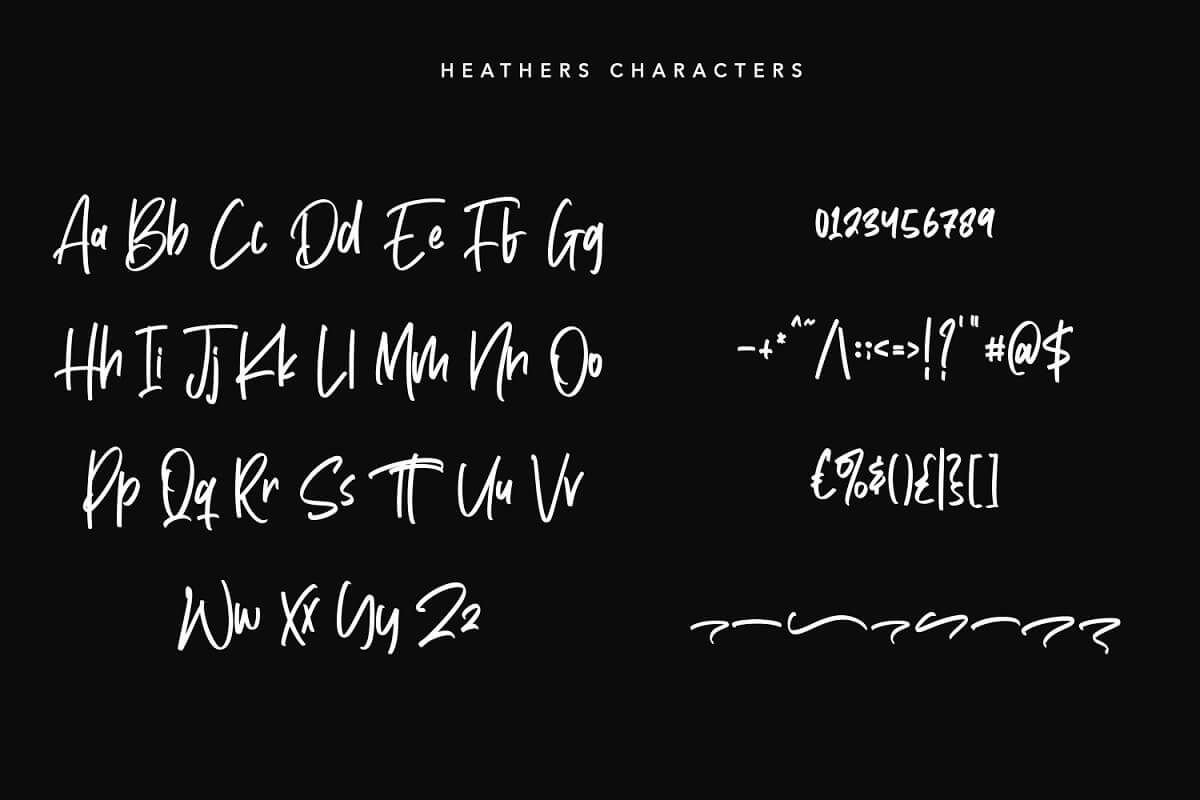 HEATHERS CHARACTERS
Aa Bb Cc Dd Ee Ff Gg
Hh Ii Jj Kk Ll Mm Nn Oo
Pp Qq Rr Ss Tt Uu Vv
Ww Xx Yy Zz
0123456789
-+*^~/\:;<=>!?'"#@$
€%&(){|}[]